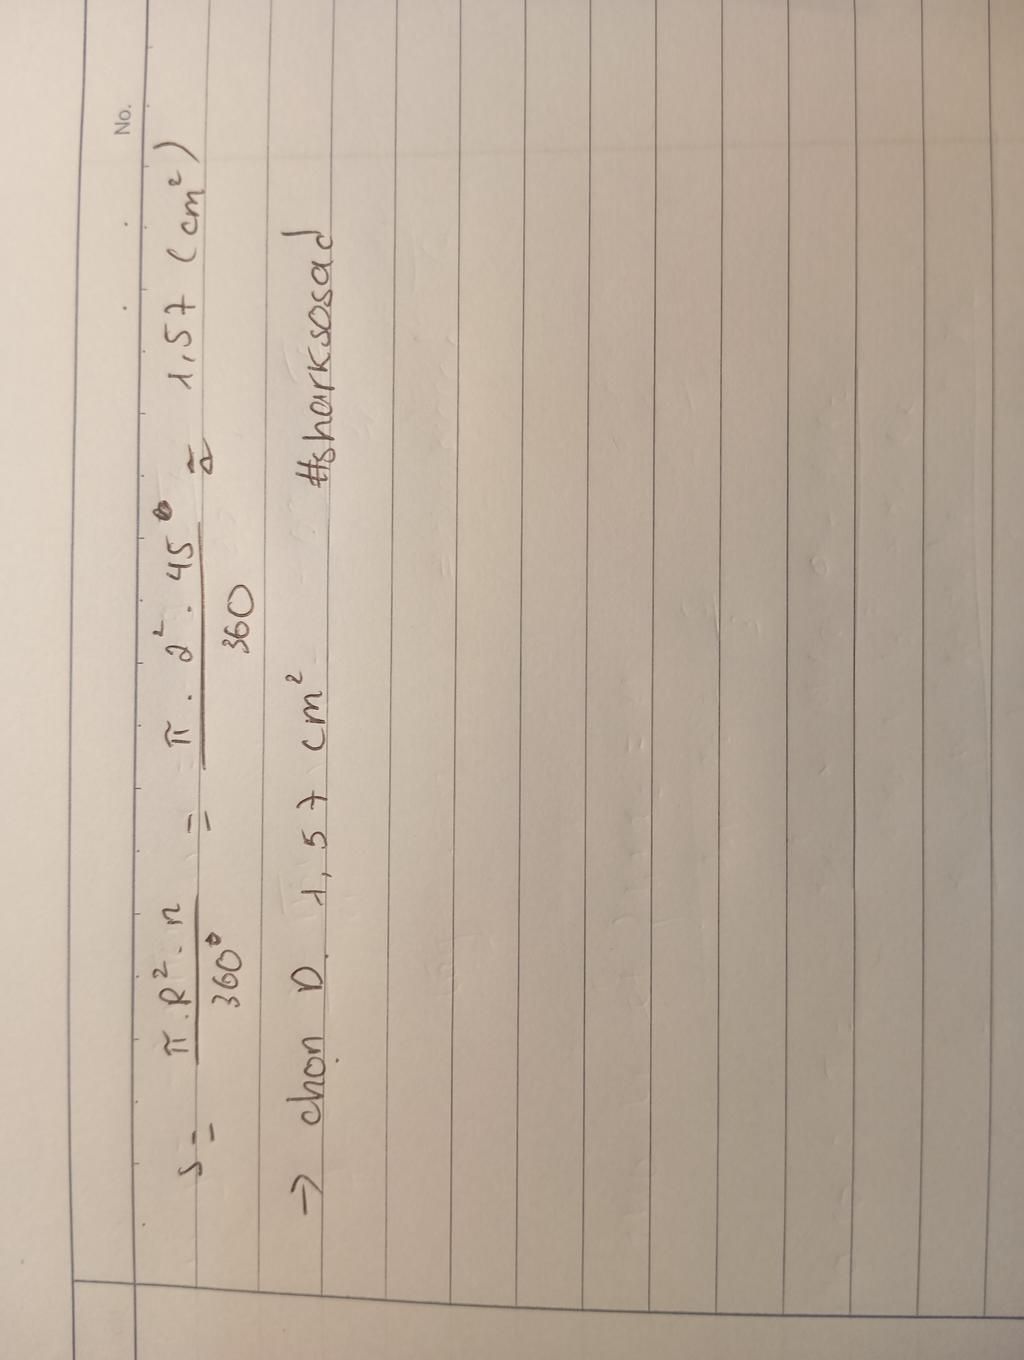 No.
S = π.R².n / 360° = π . 2² . 45° / 360 ≈ 1,57 (cm²)
→ chọn D. 1,57 cm² #sharksosad